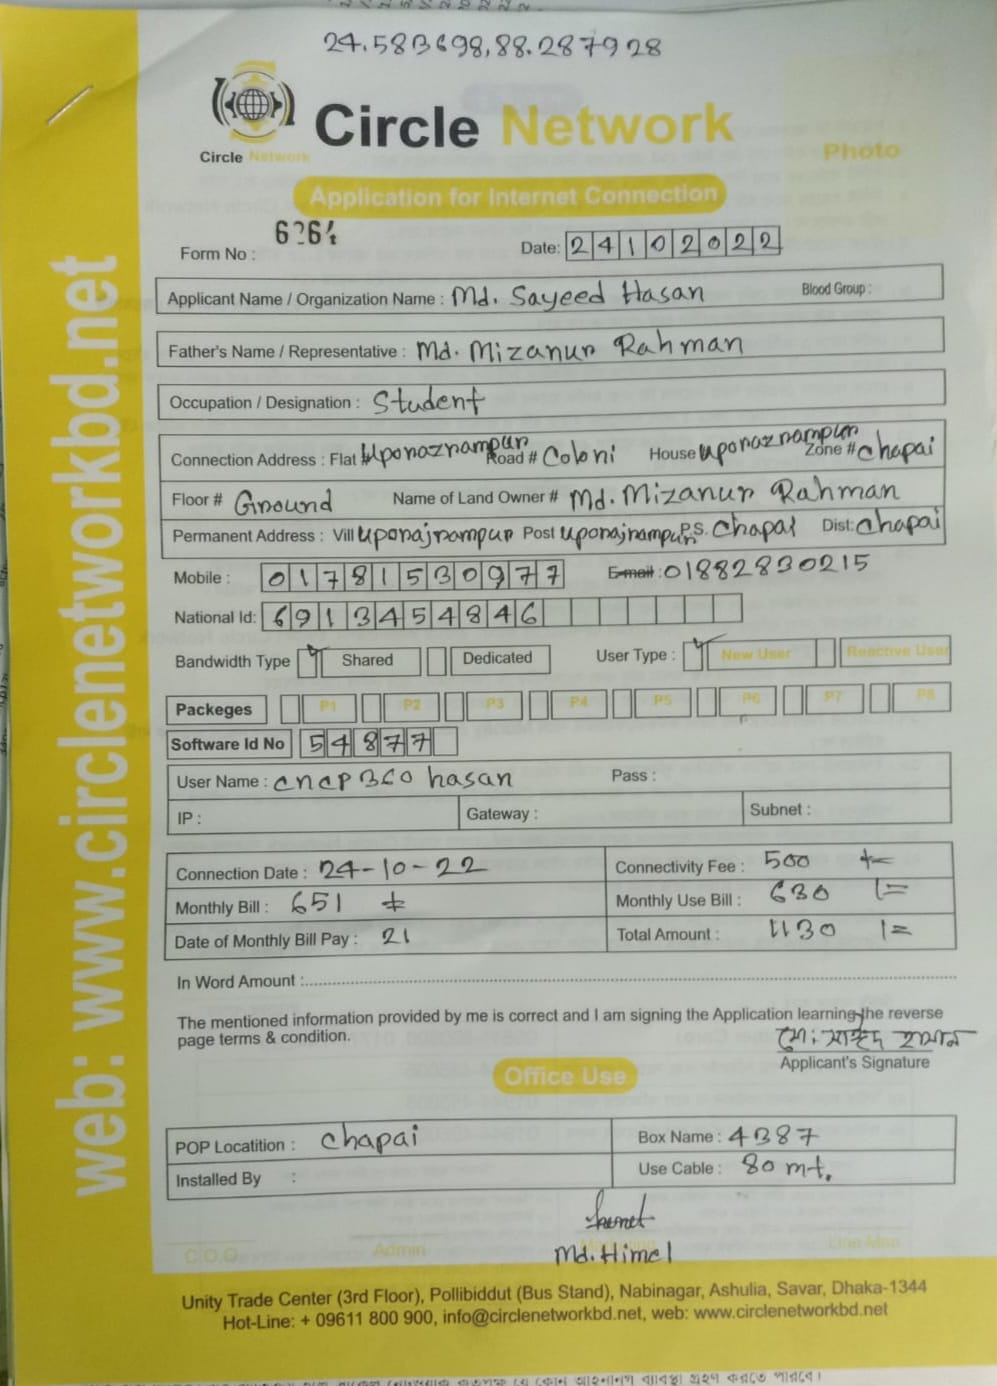 24.583698,88.287928
Circle Network
Circle Network
Photo
Application for Internet Connection
Form No : 6264
Date: 24102022
Applicant Name / Organization Name : Md. Sayeed Hasan Blood Group :
Father's Name / Representative : Md. Mizanur Rahman
Occupation / Designation : Student
Connection Address : Flat # Uponaznampur Road # Coloni House uponaznampur Zone # Chapai
Floor # Ground Name of Land Owner # Md. Mizanur Rahman
Permanent Address : Vill Uponajnampur Post Uponajnampur P.S. Chapai Dist: Chapai
Mobile : 01781530977 E-mail : 01882830215
National Id: 6913454846
Bandwidth Type Shared Dedicated User Type : New User Reactive User
Packeges P1 P2 P3 P4 P5 P6 P7 P8
Software Id No 54877
User Name : cncp360 hasan Pass :
IP : Gateway : Subnet :
Connection Date : 24-10-22 Connectivity Fee : 500
Monthly Bill : 651 Monthly Use Bill : 630 /=
Date of Monthly Bill Pay : 21 Total Amount : 1130 /=
In Word Amount :
The mentioned information provided by me is correct and I am signing the Application learning the reverse
page terms & condition.
মো: সাইদ হাসান
Applicant's Signature
Office Use
POP Locatition : Chapai Box Name : 4387
Installed By : Use Cable : 80 mt.
C.O.O Admin Line Man
Md. Himel
Unity Trade Center (3rd Floor), Pollibiddut (Bus Stand), Nabinagar, Ashulia, Savar, Dhaka-1344
Hot-Line: + 09611 800 900, info@circlenetworkbd.net, web: www.circlenetworkbd.net
web: www.circlenetworkbd.net